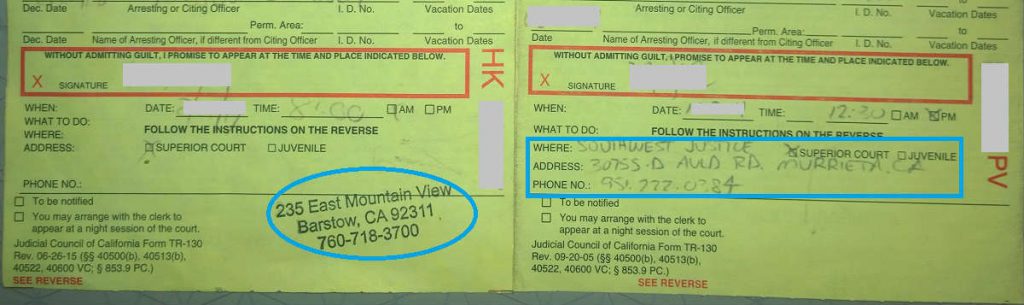 Arresting or Citing Officer I. D. No. Vacation Dates
Perm. Area: to
Dec. Date Name of Arresting Officer, if different from Citing Officer I. D. No. Vacation Dates
WITHOUT ADMITTING GUILT, I PROMISE TO APPEAR AT THE TIME AND PLACE INDICATED BELOW.
X SIGNATURE
HK
WHEN: DATE: TIME: 8:00 AM PM
WHAT TO DO: FOLLOW THE INSTRUCTIONS ON THE REVERSE
WHERE: SUPERIOR COURT JUVENILE
ADDRESS:
PHONE NO.:
235 East Mountain View
Barstow, CA 92311
760-718-3700
To be notified
You may arrange with the clerk to
appear at a night session of the court.
Judicial Council of California Form TR-130
Rev. 06-26-15 (§§ 40500(b), 40513(b),
40522, 40600 VC; § 853.9 PC.)
SEE REVERSE
Arresting or Citing Officer I. D. No. Vacation Dates
Perm. Area: to
Date Name of Arresting Officer, if different from Citing Officer I. D. No. Vacation Dates
WITHOUT ADMITTING GUILT, I PROMISE TO APPEAR AT THE TIME AND PLACE INDICATED BELOW.
X SIGNATURE
WHEN: DATE: TIME: 12:30 AM PM
WHAT TO DO: FOLLOW THE INSTRUCTIONS ON THE REVERSE
WHERE: SOUTHWEST JUSTICE SUPERIOR COURT JUVENILE
ADDRESS: 30755.D AULD RD. MURRIETA, CA
PHONE NO.: 951.222.0384
PV
To be notified
You may arrange with the clerk to
appear at a night session of the court.
Judicial Council of California Form TR-130
Rev. 09-20-05 (§§ 40500(b), 40513(b),
40522, 40600 VC; § 853.9 PC.)
SEE REVERSE